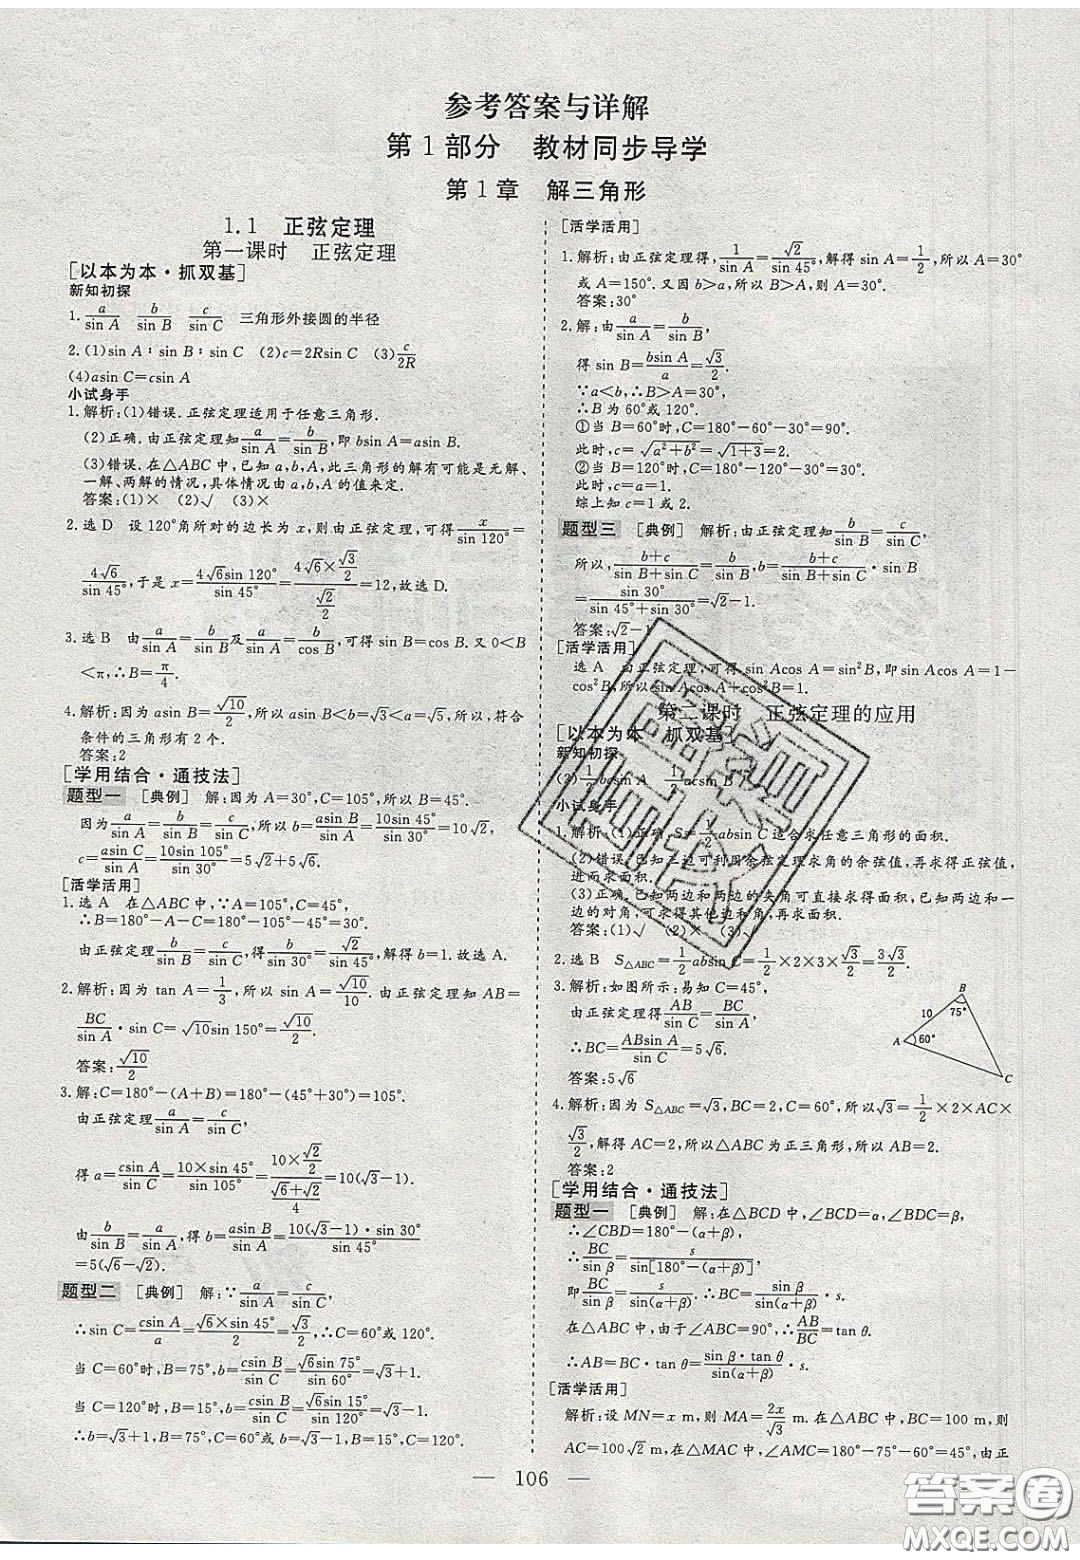 参考答案与详解
第1部分 教材同步导学
第1章 解三角形
1.1 正弦定理
第一课时 正弦定理
[以本为本·抓双基]
新知初探
1. a/sin A b/sin B c/sin C 三角形外接圆的半径
2.(1)sin A∶sin B∶sin C (2)c=2Rsin C (3)c/2R
(4)asin C=csin A
小试身手
1.解析:(1)错误.正弦定理适用于任意三角形.
(2)正确.由正弦定理知a/sin A=b/sin B,即bsin A=asin B.
(3)错误.在△ABC中,已知a,b,A,此三角形的解有可能是无解、
一解、两解的情况,具体情况由a,b,A的值来定.
答案:(1)× (2)√ (3)×
2.选D 设120°角所对的边长为x,则由正弦定理,可得x/sin 120°=
4√6/sin 45°,于是x=4√6sin 120°/sin 45°=(4√6×√3/2)/(√2/2)=12,故选D.
3.选B 由a/sin A=b/sin B及a/sin A=b/cos B,可得sin B=cos B.又0<B
<π,∴B=π/4.
4.解析:因为asin B=√10/2,所以asin B<b=√3<a=√5,所以,符合
条件的三角形有2个.
答案:2
[学用结合·通技法]
题型一 [典例] 解:因为A=30°,C=105°,所以B=45°.
因为a/sin A=b/sin B=c/sin C,所以b=asin B/sin A=10sin 45°/sin 30°=10√2,
c=asin C/sin A=10sin 105°/sin 30°=5√2+5√6.
[活学活用]
1.选A 在△ABC中,∵A=105°,C=45°,
∴B=180°-A-C=180°-105°-45°=30°.
由正弦定理b/sin B=c/sin C,得b/sin 30°=√2/sin 45°,解得b=1.故选A.
2.解析:因为tan A=1/3,所以sin A=√10/10.由正弦定理知AB=
BC/sin A·sin C=√10sin 150°=√10/2.
答案:√10/2
3.解:C=180°-(A+B)=180°-(45°+30°)=105°.
由正弦定理a/sin A=c/sin C,
得a=csin A/sin C=10×sin 45°/sin 105°=(10×√2/2)/((√6+√2)/4)=10(√3-1).
由a/sin A=b/sin B,得b=asin B/sin A=10(√3-1)·sin 30°/sin 45°
=5(√6-√2).
题型二 [典例] 解:∵a/sin A=c/sin C,
∴sin C=csin A/a=√6×sin 45°/2=√3/2,∴C=60°或120°.
当C=60°时,B=75°,b=csin B/sin C=√6sin 75°/sin 60°=√3+1;
当C=120°时,B=15°,b=csin B/sin C=√6sin 15°/sin 120°=√3-1.
∴b=√3+1,B=75°,C=60°或b=√3-1,B=15°,C=120°.
[活学活用]
1.解析:由正弦定理得,1/sin A=√2/sin 45°,解得sin A=1/2,所以A=30°
或A=150°.又因b>a,所以B>A,则A=30°.
答案:30°
2.解:由a/sin A=b/sin B,
得sin B=bsin A/a=√3/2.
∵a<b,∴B>A=30°,
∴B为60°或120°.
①当B=60°时,C=180°-60°-30°=90°.
此时,c=√(a²+b²)=√(1+3)=2.
②当B=120°时,C=180°-120°-30°=30°.
此时,c=a=1.
综上知c=1或2.
题型三 [典例] 解析:由正弦定理知b/sin B=c/sin C,
所以,(b+c)/(sin B+sin C)=b/sin B,b=(b+c)/(sin B+sin C)·sin B
=sin 30°/(sin 45°+sin 30°)=√2-1.
答案:√2-1
[活学活用]
选A 由正弦定理,可得sin Acos A=sin²B,即sin Acos A=1-
cos²B,所以sin Acos A+cos²B=1.
第二课时 正弦定理的应用
[以本为本 抓双基]
新知初探
(2)1/2bcsin A 1/2acsin B
小试身手
1.解析:(1)正确,S=1/2absin C适合求任意三角形的面积.
(2)错误.已知三边可利用余弦定理求角的余弦值,再求得正弦值,
进而求面积.
(3)正确.已知两边和两边的夹角可直接求得面积,已知两边和一
边的对角,可求得其他边和角,再求面积.
答案:(1)√ (2)× (3)√
2.选B S△ABC=1/2absin C=1/2×2×3×√3/2=3√3/2.
3.解析:如图所示:易知C=45°,
由正弦定理得AB/sin C=BC/sin A,
∴BC=ABsin A/sin C=5√6.
答案:5√6
B
75°
10
A 60°
C
4.解析:因为S△ABC=√3,BC=2,C=60°,所以√3=1/2×2×AC×
√3/2,解得AC=2,所以△ABC为正三角形,所以AB=2.
答案:2
[学用结合·通技法]
题型一 [典例] 解:在△BCD中,∠BCD=α,∠BDC=β,
∴∠CBD=180°-(α+β),
∴BC/sin β=s/sin[180°-(α+β)],
即BC/sin β=s/sin(α+β),∴BC=sin β/sin(α+β)·s.
在△ABC中,由于∠ABC=90°,∴AB/BC=tan θ.
∴AB=BC·tan θ=sin β·tan θ/sin(α+β)·s.
[活学活用]
解析:设MN=x m,则MA=2x/√3 m.在△ABC中,BC=100 m,则
AC=100√2 m,在△MAC中,∠AMC=180°-75°-60°=45°,由正
— 106 —
答案圈
MXQE.COM